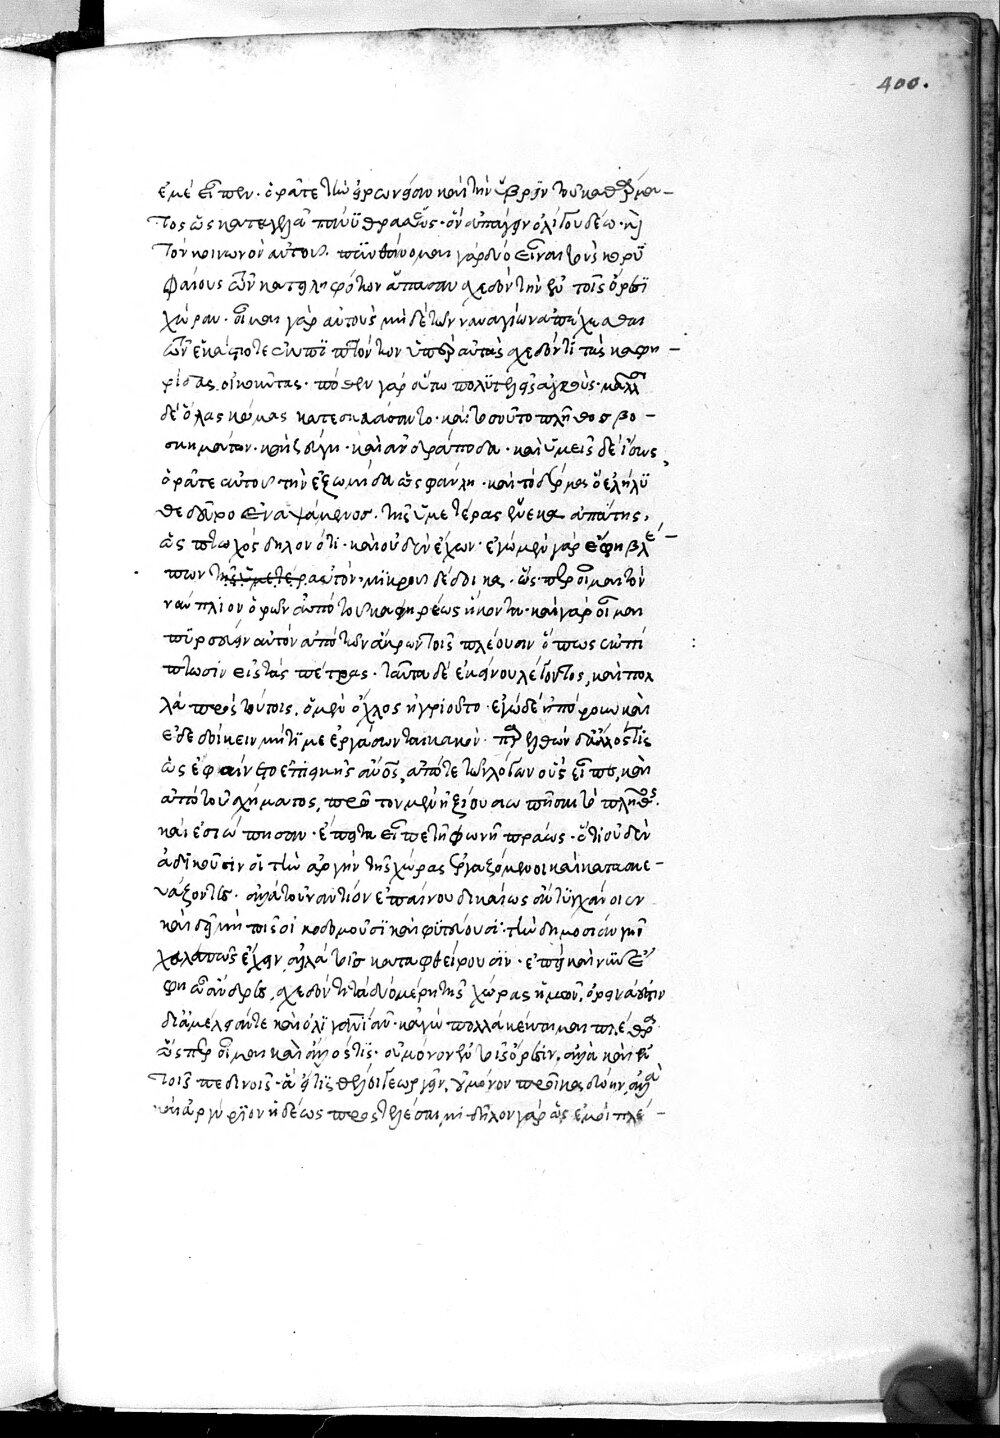 ἐμέ εἶπεν· ὁρᾶτε τὴν εἰρωνείαν καὶ τὴν ὕβριν τοῦ καθάρμα-
τος ὡς καταγελᾶ πάνυ θρασέως· ὃν ἀπάγειν ὀλίγου δέω· καὶ
τὸν κοινωνὸν αὐτοῦ. πυνθάνομαι γὰρ δύο εἶναι τοὺς κορυ
φαίους τῶν κατειληφότων ἅπασαν σχεδὸν τὴν ἐν τοῖς ὄρεσι
χώραν. οἶμαι γὰρ αὐτοὺς μηδὲ τῶν ναυαγίων ἀπέχεσθαι
τῶν ἑκάστοτε ἐκπιπτόντων ὑπὲρ αὐτὰς σχεδόν τι τὰς καφη-
ρίδας οἰκοῦντας· πόθεν γὰρ οὕτω πολυτελεῖς ἀγροὺς· μᾶλλον
δὲ ὅλας κώμας κατεσκευάσαντο· καὶ τοσοῦτο πλῆθος βο-
σκημάτων· καὶ ζεύγη· καὶ ἀνδράποδα· καὶ ὑμεῖς δὲ ἴσως
ὁρᾶτε αὐτοῦ τὴν ἐξωμίδα ὡς φαύλη· καὶ τὸ δέρμα ὃ ἐλήλυ
θε δεῦρο ἐναψάμενος. τῆς ὑμετέρας ἕνεκα ἀπάτης,
ὡς πτωχὸς δηλονότι· καὶ οὐδὲν ἔχων· ἐγὼ μὲν γὰρ ἔφη βλέ-
πων τῆς ὑμετέρ αὐτὸν· μικροῦ δέδοικα· ὥσπερ οἶμαι τὸν
ναύπλιον ὁρῶν ἀπὸ τοῦ καφηρέως ἥκοντα· καὶ γὰρ οἶμαι
πυρσεύειν αὐτὸν ἀπὸ τῶν ἄκρων τοῖς πλέουσιν ὅπως ἐκπί
πτωσιν εἰς τὰς πέτρας. ταῦτα δὲ ἐκείνου λέγοντος, καὶ πολ
λὰ πρὸς τούτοις, ὁ μὲν ὄχλος ἠγριοῦτο· ἐγὼ δὲ ἠπόρουν καὶ
ἐδεδοίκειν μή τι με ἐργάσωνται κακόν· παρελθὼν δ' ἄλλός τις
ὡς ἐφαίνετο ἐπιεικὴς ἄνος, ἀπό τε τῶν λόγων οὓς εἶπε, καὶ
ἀπὸ τοῦ σχήματος, πρῶτον μὲν ἠξίου σιωπῆσαι τὸ πλῆθος.
καὶ ἐσιώπησαν· ἔπειτα εἶπε τῇ φωνῇ πράως· ὅτι οὐδὲν
ἀδικοῦσιν οἱ τὴν ἀργὴν τῆς χώρας ἐργαζόμενοι καὶ κατασκε-
υάζοντες· ἀλλὰ τοὐναντίον ἐπαίνου δικαίως ἂν τυγχάνοιεν
καὶ δεῖ μὴ τοῖς οἰκοδομοῦσι καὶ φυτεύουσι· τὴν δημοσίαν γῆν
χαλεπῶς ἔχειν, ἀλλὰ τοῖς καταφθείρουσιν· ἐπεὶ καὶ νῦν ἔ
φη ὦ ἄνδρες, σχεδόν τι τὰ δύο μέρη τῆς χώρας ἡμῶν, ἔρημά ἐστιν
δι' ἀμέλειάν τε καὶ ὀλιγανίαν· κἀγὼ πολλὰ κέκτημαι πλέθρα
ὥσπερ οἶμαι καὶ ἄλλός τις· οὐ μόνον ἐν τοῖς ὄρεσιν, ἀλλὰ καὶ ἐν
τοῖς πεδινοῖς· ἃ εἴ τις ἐθέλοι γεωργεῖν, οὐ μόνον προῖκα δοίην, ἀλλὰ
καὶ ἀργύριον ἡδέως προστελέσαιμι· δῆλον γὰρ ὡς ἐμοὶ πλέ-
400.